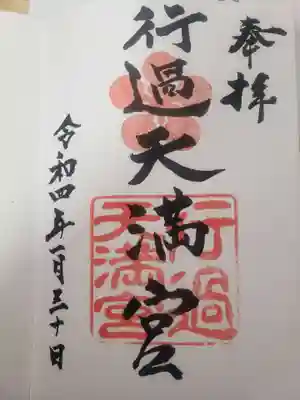 奉拝
行過天満宮
行過
天満宮
令和四年一月三十日